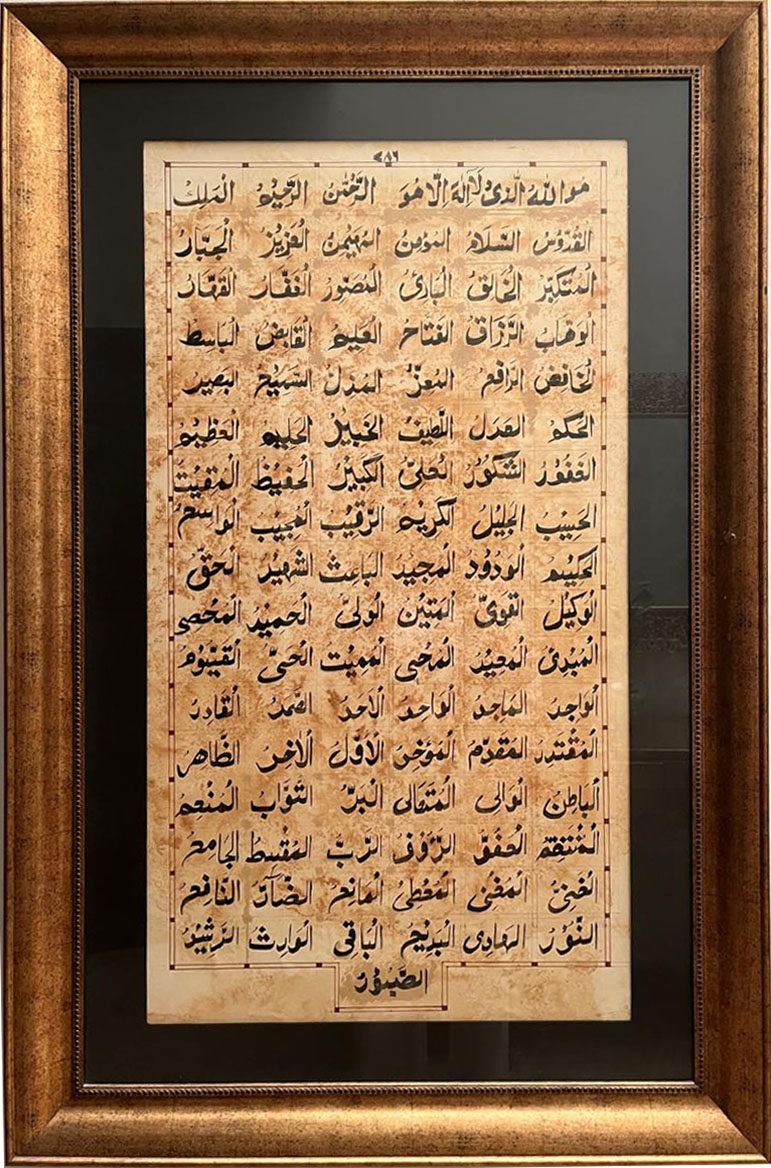 ٧٨٦
هُوَ اللهُ الَّذِى لَا إِلَهَ إِلَّا هُوَ الرَّحْمٰنُ الرَّحِيْمُ الْمَلِكُ
الْقُدُّوْسُ السَّلَامُ الْمُؤْمِنُ الْمُهَيْمِنُ الْعَزِيْزُ الْجَبَّارُ
الْمُتَكَبِّرُ الْخَالِقُ الْبَارِئُ الْمُصَوِّرُ الْغَفَّارُ الْقَهَّارُ
الْوَهَّابُ الرَّزَّاقُ الْفَتَّاحُ الْعَلِيْمُ الْقَابِضُ الْبَاسِطُ
الْخَافِضُ الرَّافِعُ الْمُعِزُّ الْمُذِلُّ السَّمِيْعُ الْبَصِيْرُ
الْحَكَمُ الْعَدْلُ اللَّطِيْفُ الْخَبِيْرُ الْحَلِيْمُ الْعَظِيْمُ
الْغَفُوْرُ الشَّكُوْرُ الْعَلِىُّ الْكَبِيْرُ الْحَفِيْظُ الْمُقِيْتُ
الْحَسِيْبُ الْجَلِيْلُ الْكَرِيْمُ الرَّقِيْبُ الْمُجِيْبُ الْوَاسِعُ
الْحَكِيْمُ الْوَدُوْدُ الْمَجِيْدُ الْبَاعِثُ الشَّهِيْدُ الْحَقُّ
الْوَكِيْلُ الْقَوِىُّ الْمَتِيْنُ الْوَلِىُّ الْحَمِيْدُ الْمُحْصِى
الْمُبْدِئُ الْمُعِيْدُ الْمُحْيِى الْمُمِيْتُ الْحَىُّ الْقَيُّوْمُ
الْوَاجِدُ الْمَاجِدُ الْوَاحِدُ الْاَحَدُ الصَّمَدُ الْقَادِرُ
الْمُقْتَدِرُ الْمُقَدِّمُ الْمُؤَخِّرُ الْاَوَّلُ الْاٰخِرُ الظَّاهِرُ
الْبَاطِنُ الْوَالِى الْمُتَعَالِى الْبَرُّ التَّوَّابُ الْمُنْعِمُ
الْمُنْتَقِمُ الْعَفُوُّ الرَّؤُفُ الرَّبُّ الْمُقْسِطُ الْجَامِعُ
الْغَنِىُّ الْمُغْنِى الْمُعْطِى الْمَانِعُ الضَّآرُّ النَّافِعُ
النُّوْرُ الْهَادِى الْبَدِيْعُ الْبَاقِى الْوَارِثُ الرَّشِيْدُ
الصَّبُوْرُ